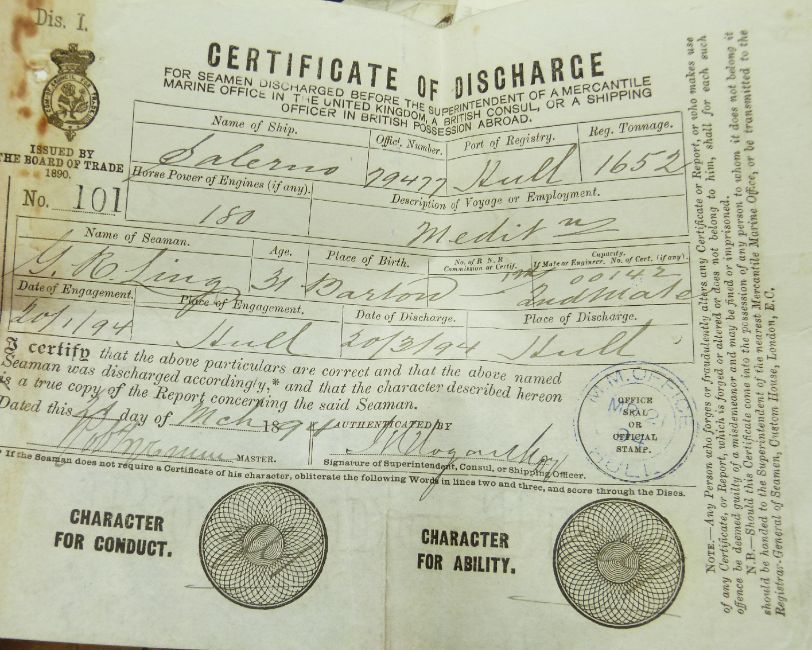 Dis. I.
CERTIFICATE OF DISCHARGE
FOR SEAMEN DISCHARGED BEFORE THE SUPERINTENDENT OF A MERCANTILE
MARINE OFFICE IN THE UNITED KINGDOM, A BRITISH CONSUL, OR A SHIPPING
OFFICER IN BRITISH POSSESSION ABROAD.
ISSUED BY
THE BOARD OF TRADE
1890.
No. 101
Name of Ship. Offici. Number. Port of Registry. Reg. Tonnage.
Salerno 79477 Hull 1652
Horse Power of Engines (if any). Description of Voyage or Employment.
180 Medit n
Name of Seaman. Age. Place of Birth. No. of R N R Commission or Certif. Capacity. If Mate or Engineer, No. of Cert. (if any).
G. R. Ling 31 Barton 00142 2nd Mate
Date of Engagement. Place of Engagement. Date of Discharge. Place of Discharge.
20/1/94 Hull 20/3/94 Hull
certify that the above particulars are correct and that the above named
Seaman was discharged accordingly,* and that the character described hereon
is a true copy of the Report concerning the said Seaman.
Dated this day of Mch 1894 AUTHENTICATED BY
MASTER. Signature of Superintendent, Consul, or Shipping Officer.
* If the Seaman does not require a Certificate of his character, obliterate the following Words in lines two and three, and score through the Discs.
M.M. OFFICE
OFFICE
SEAL
OR
OFFICIAL
STAMP.
HULL
CHARACTER
FOR CONDUCT.
CHARACTER
FOR ABILITY.
NOTE.—Any Person who forges or fraudulently alters any Certificate or Report, or who makes use
of any Certificate, or Report, which is forged or altered or does not belong to him, shall for each such
offence be deemed guilty of a misdemeanor and may be fined or imprisoned.
N.B.—Should this Certificate come into the possession of any person to whom it does not belong it
should be handed to the Superintendent of the nearest Mercantile Marine Office, or be transmitted to the
Registrar-General of Seamen, Custom House, London, E.C.